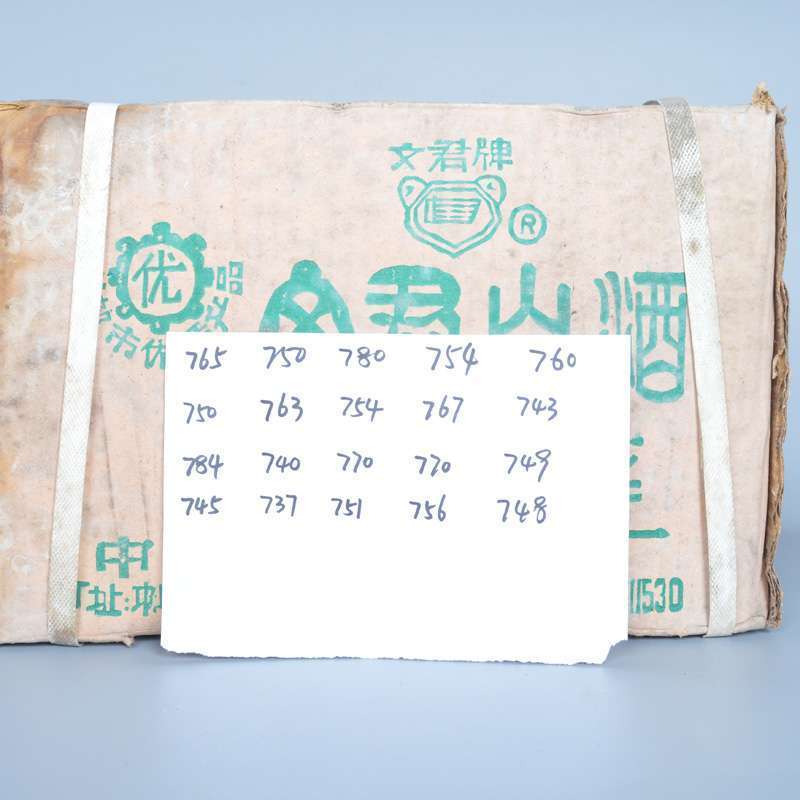 文君牌
®
优
品
市优
文君山酒
765 750 780 754 760
750 763 754 767 743
784 740 770 770 749
745 737 751 756 748
中
址:
11530